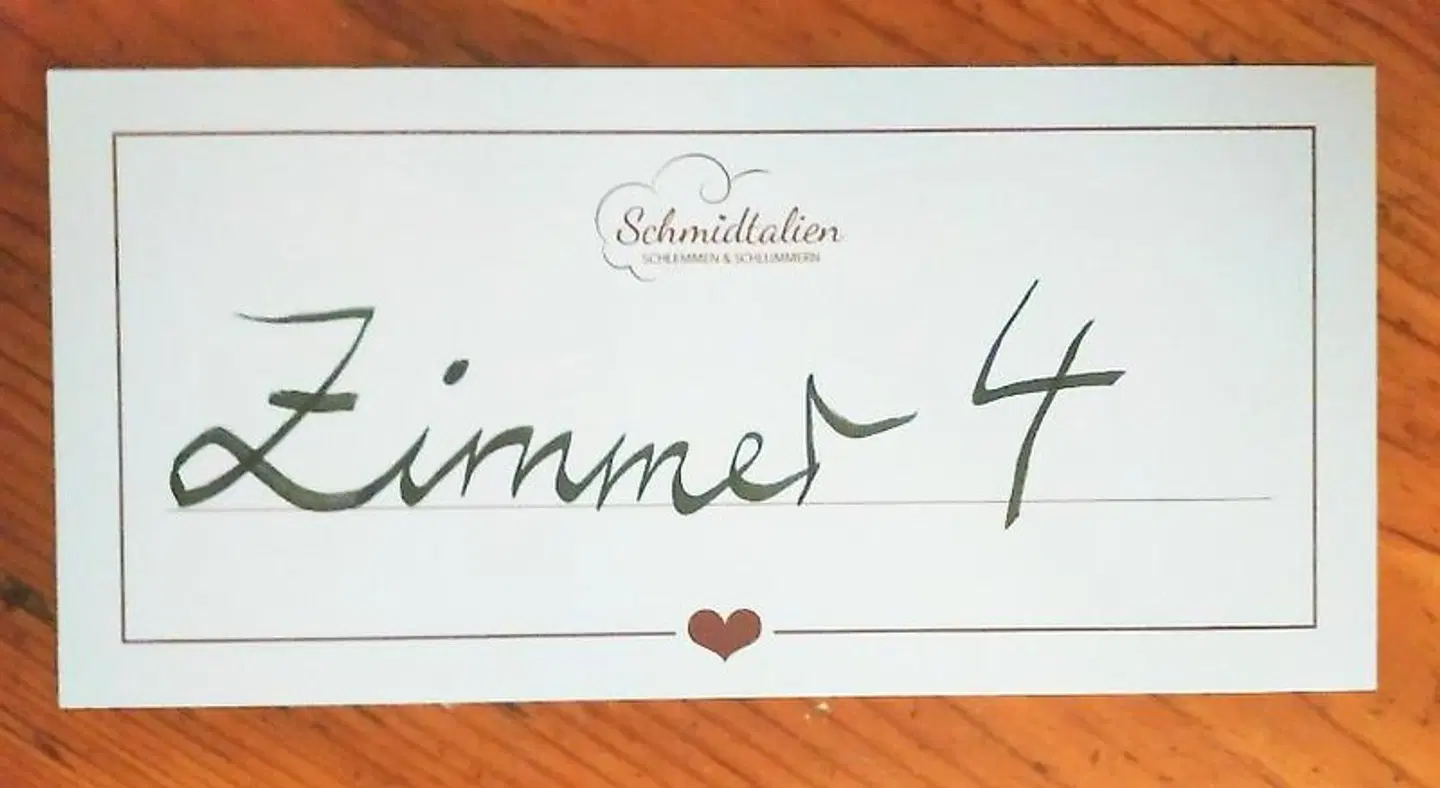 Schmidtalien
SCHLEMMEN & SCHLUMMERN
Zimmer 4